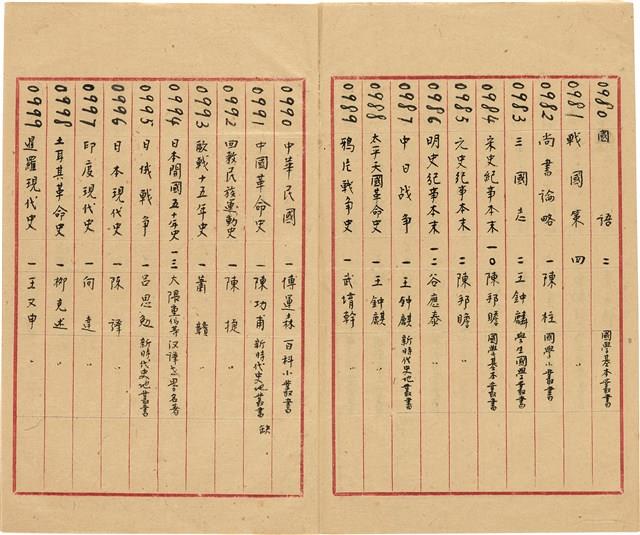 0980 國語 二 國學基本叢書
0981 戰國策 四 〃
0982 尚書論略 一 陳柱 國學小叢書
0983 三國志 二 王鍾麒 學生國學叢書
0984 宋史紀事本末 一〇 陳邦瞻 國學基本叢書
0985 元史紀事本末 二 陳邦瞻 〃
0986 明史紀事本末 一二 谷應泰 〃
0987 中日战争 一 王鍾麒 新時代史地叢書
0988 太平天國革命史 一 王鍾麒 〃
0989 鴉片戰争史 一 武堉幹 〃
0990 中華民國 一 傅運森 百科小叢書
0991 中國革命史 一 陳功甫 新時代史地叢書 缺
0992 回教民族運動史 一 陳捷 〃
0993 歐戰十五年史 一 蕭贛 〃
0994 日本開國五十年史 一二 大隈重信等 汉譯世界名著
0995 日俄戰争 一 呂思勉 新時代史地叢書
0996 日本現代史 一 陳譯 〃
0997 印度現代史 一 向達 〃
0998 土耳其革命史 一 柳克述 〃
0999 暹羅現代史 一 王又申 〃